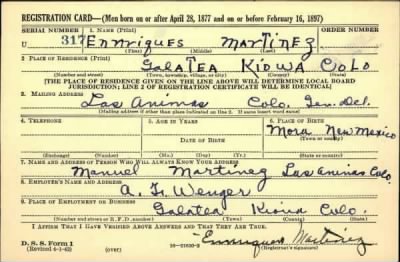 REGISTRATION CARD—(Men born on or after April 28, 1877 and on or before February 16, 1897)
SERIAL NUMBER 1. NAME (Print) ORDER NUMBER
U 317 Enmriques Martinez
(First) (Middle) (Last)
2. PLACE OF RESIDENCE (Print)
Galatea Kiowa Colo
(Number and street) (Town, township, village, or city) (County) (State)
[THE PLACE OF RESIDENCE GIVEN ON THE LINE ABOVE WILL DETERMINE LOCAL BOARD
JURISDICTION; LINE 2 OF REGISTRATION CERTIFICATE WILL BE IDENTICAL]
3. MAILING ADDRESS
Las Animas Colo. Gen. Del.
[Mailing address if other than place indicated on line 2. If same insert word same]
4. TELEPHONE 5. AGE IN YEARS 6. PLACE OF BIRTH
Mora New Mexico
DATE OF BIRTH
(Town or county)
(Exchange) (Number) (Mo.) (Day) (Yr.) (State or country)
7. NAME AND ADDRESS OF PERSON WHO WILL ALWAYS KNOW YOUR ADDRESS
Manuel Martinez Las Animas Colo.
8. EMPLOYER'S NAME AND ADDRESS
A. F. Wenger
9. PLACE OF EMPLOYMENT OR BUSINESS
Galatea Kiowa Colo.
(Number and street or R. F. D. number) (Town) (County) (State)
I AFFIRM THAT I HAVE VERIFIED ABOVE ANSWERS AND THAT THEY ARE TRUE.
D. S. S. Form 1
(Revised 4-1-42) (over) Enmriques Martinez
(Registrant's signature)